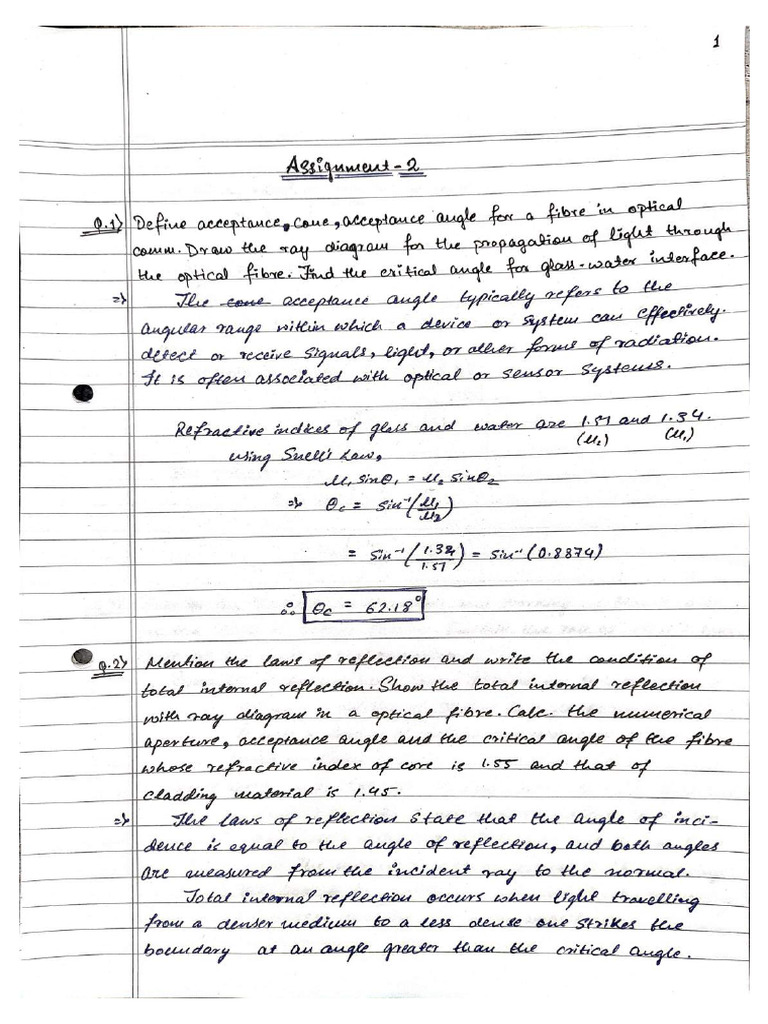 1
Assignment-2
Q.1) Define acceptance, cone, acceptance angle for a fibre in optical
comm. Draw the ray diagram for the propagation of light through
the optical fibre. Find the critical angle for glass-water interface.
=> The cone acceptance angle typically refers to the
angular range within which a device or system can effectively.
detect or receive signals, light, or other forms of radiation.
It is often associated with optical or sensor systems.
Refractive indices of glass and water are 1.51 and 1.34.
(μ₂) (μ₁)
using Snell's Law,
μ₁ sinθ₁ = μ₂ sinθ₂
=> θc = sin⁻¹(μ₁/μ₂)
= sin⁻¹(1.34/1.51) = sin⁻¹(0.8874)
∴ θc = 62.18°
Q.2) Mention the laws of reflection and write the condition of
total internal reflection. Show the total internal reflection
with ray diagram in a optical fibre. Calc. the numerical
aperture, acceptance angle and the critical angle of the fibre
whose refractive index of core is 1.55 and that of
cladding material is 1.45.
=> The laws of reflection state that the angle of inci-
dence is equal to the angle of reflection, and both angles
are measured from the incident ray to the normal.
Total internal reflection occurs when light travelling
from a denser medium to a less dense one strikes the
boundary at an angle greater than the critical angle.